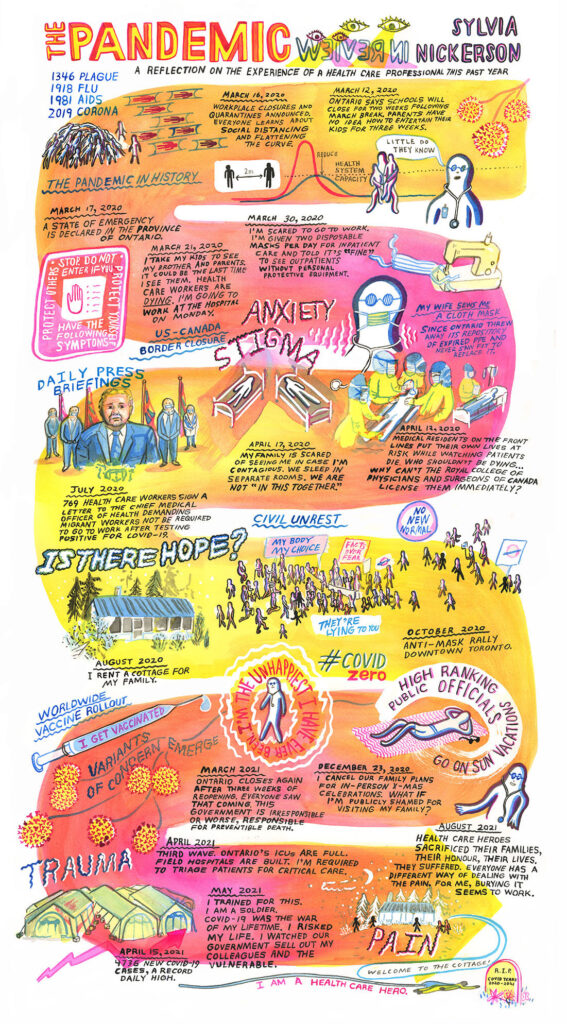 THE PANDEMIC IN REVIEW
SYLVIA
NICKERSON
A REFLECTION ON THE EXPERIENCE OF A HEALTH CARE PROFESSIONAL THIS PAST YEAR
1346 PLAGUE
1918 FLU
1981 AIDS
2019 CORONA
THE PANDEMIC IN HISTORY
MARCH 16, 2020
WORKPLACE CLOSURES AND
QUARANTINES ANNOUNCED.
EVERYONE LEARNS ABOUT
SOCIAL DISTANCING
AND FLATTENING
THE CURVE.
MARCH 12, 2020
ONTARIO SAYS SCHOOLS WILL
CLOSE FOR TWO WEEKS FOLLOWING
MARCH BREAK. PARENTS HAVE
NO IDEA HOW TO ENTERTAIN THEIR
KIDS FOR THREE WEEKS.
2m
REDUCE
HEALTH
SYSTEM
CAPACITY
LITTLE DO
THEY KNOW
MARCH 17, 2020
A STATE OF EMERGENCY
IS DECLARED IN THE PROVINCE
OF ONTARIO.
STOP. DO NOT
ENTER IF YOU
HAVE THE
FOLLOWING
SYMPTOMS
PROTECT OTHERS
PROTECT YOURSELF
MARCH 21, 2020
I TAKE MY KIDS TO SEE
MY BROTHER AND PARENTS.
IT COULD BE THE LAST TIME
I SEE THEM. HEALTH
CARE WORKERS ARE
DYING. I'M GOING TO
WORK AT THE HOSPITAL
ON MONDAY.
US-CANADA
BORDER CLOSURE
MARCH 30, 2020
I'M SCARED TO GO TO WORK.
I'M GIVEN TWO DISPOSABLE
MASKS PER DAY FOR INPATIENT
CARE AND TOLD IT'S "FINE"
TO SEE OUTPATIENTS
WITHOUT PERSONAL
PROTECTIVE EQUIPMENT.
MY WIFE SEWS ME
A CLOTH MASK
SINCE ONTARIO THREW
AWAY ITS REPOSITORY
OF EXPIRED PPE AND
NEVER SAW FIT TO
REPLACE IT.
ANXIETY
STIGMA
DAILY PRESS
BRIEFINGS
APRIL 17, 2020
MY FAMILY IS SCARED
OF SEEING ME IN CASE I'M
CONTAGIOUS. WE SLEEP IN
SEPARATE ROOMS. WE ARE
NOT "IN THIS TOGETHER."
APRIL 12, 2020
MEDICAL RESIDENTS ON THE FRONT
LINES PUT THEIR OWN LIVES AT
RISK WHILE WATCHING PATIENTS
DIE WHO SHOULDN'T BE DYING...
WHY CAN'T THE ROYAL COLLEGE OF
PHYSICIANS AND SURGEONS OF CANADA
LICENSE THEM IMMEDIATELY?
JULY 2020
769 HEALTH CARE WORKERS SIGN A
LETTER TO THE CHIEF MEDICAL
OFFICER OF HEALTH DEMANDING
MIGRANT WORKERS NOT BE REQUIRED
TO GO TO WORK AFTER TESTING
POSITIVE FOR COVID-19.
CIVIL UNREST
NO
NEW
NORMAL
IS THERE HOPE?
MY BODY
MY CHOICE
FACTS
OVER
FEAR
THEY'RE
LYING TO YOU
OCTOBER 2020
ANTI-MASK RALLY
DOWNTOWN TORONTO.
AUGUST 2020
I RENT A COTTAGE FOR
MY FAMILY.
#COVID
ZERO
WORLDWIDE
VACCINE ROLLOUT
I GET VACCINATED
VARIANTS
OF CONCERN EMERGE
I'M THE UNHAPPIEST I HAVE EVER BEEN
HIGH RANKING
PUBLIC OFFICIALS
GO ON SUN VACATIONS
MARCH 2021
ONTARIO CLOSES AGAIN
AFTER THREE WEEKS OF
REOPENING. EVERYONE SAW
THAT COMING. THIS
GOVERNMENT IS IRRESPONSIBLE
OR WORSE, RESPONSIBLE
FOR PREVENTIBLE DEATH.
DECEMBER 23, 2020
I CANCEL OUR FAMILY PLANS
FOR IN-PERSON X-MAS
CELEBRATIONS. WHAT IF
I'M PUBLICLY SHAMED FOR
VISITING MY FAMILY?
APRIL 2021
THIRD WAVE. ONTARIO'S ICUs ARE FULL.
FIELD HOSPITALS ARE BUILT. I'M REQUIRED
TO TRIAGE PATIENTS FOR CRITICAL CARE.
AUGUST 2021
HEALTH CARE HEROES
SACRIFICED THEIR FAMILIES,
THEIR HONOUR, THEIR LIVES.
THEY SUFFERED. EVERYONE HAS A
DIFFERENT WAY OF DEALING WITH
THE PAIN. FOR ME, BURYING IT
SEEMS TO WORK.
TRAUMA
MAY, 2021
I TRAINED FOR THIS.
I AM A SOLDIER.
COVID-19 WAS THE WAR
OF MY LIFETIME. I RISKED
MY LIFE. I WATCHED OUR
GOVERNMENT SELL OUT MY
COLLEAGUES AND THE
VULNERABLE.
APRIL 15, 2021
4736 NEW COVID-19
CASES, A RECORD
DAILY HIGH.
PAIN
WELCOME TO THE COTTAGE!
I AM A HEALTH CARE HERO.
R.I.P.
COVID YEARS
2020-2021